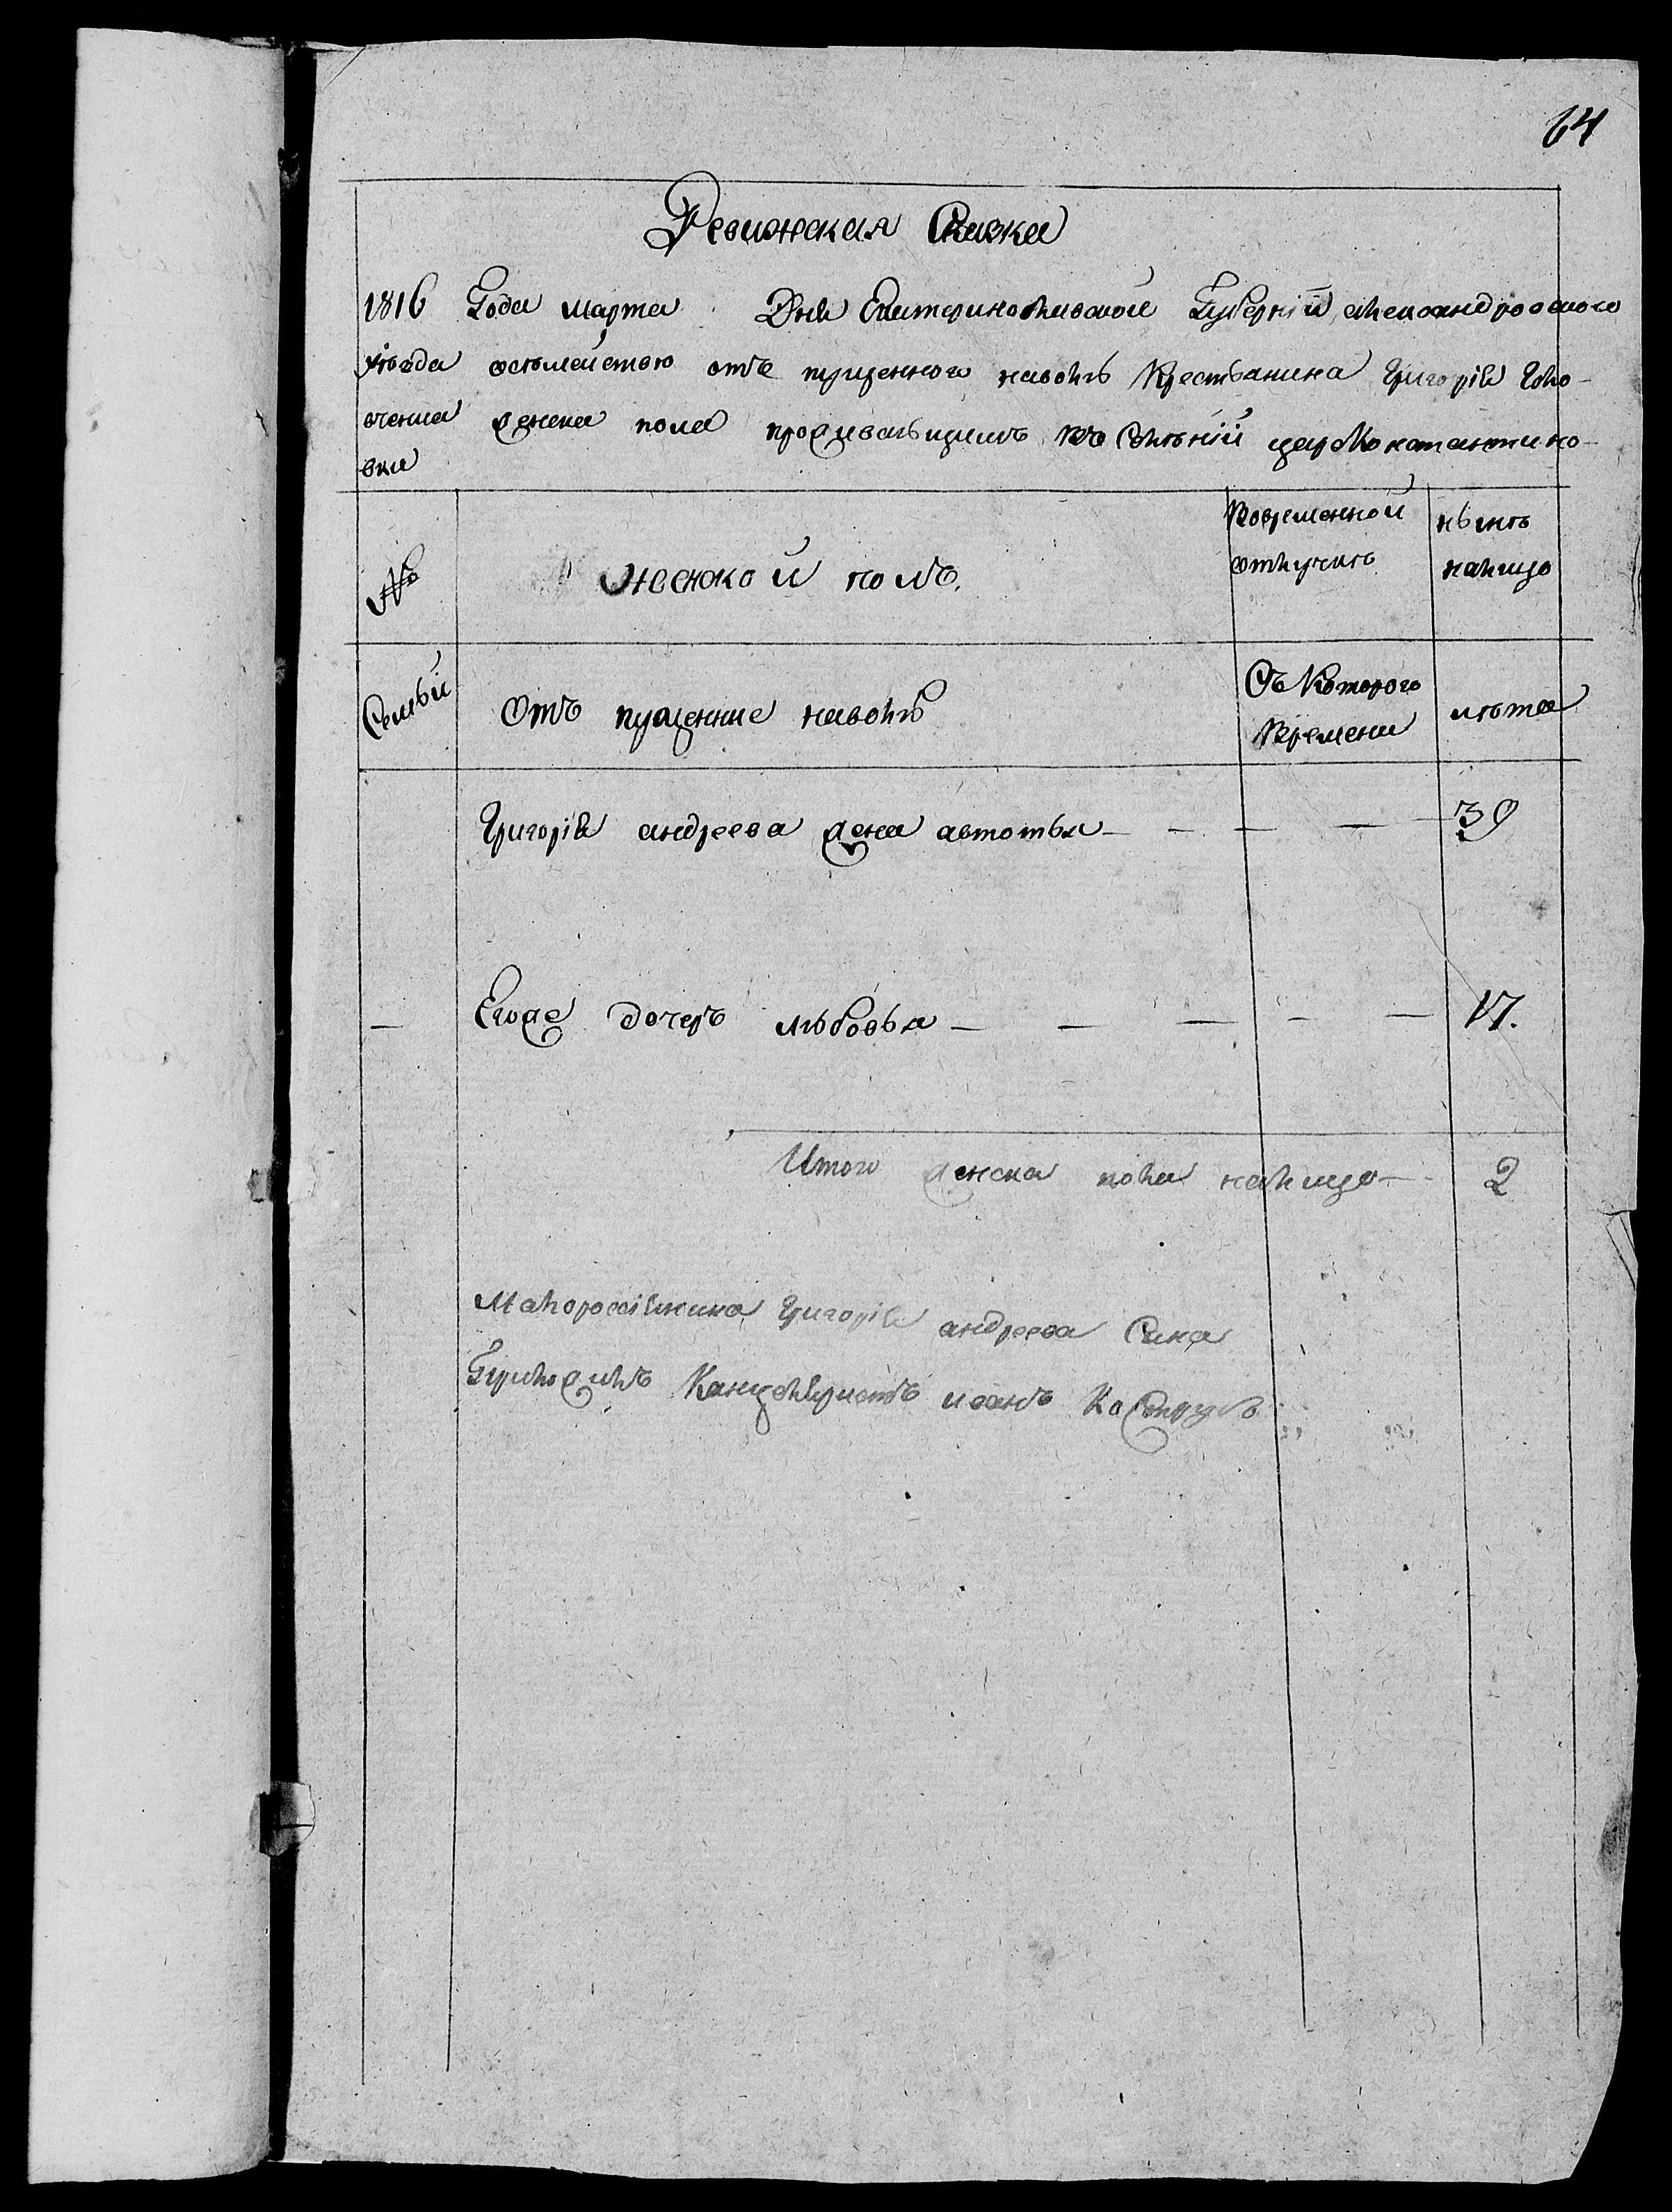 64
Ревижская Сказка
1816 Года марта Дня Екатеринославской Губернїи, александровского
уѣзда осемействѣ отъ пущенного наволѣ Крестьянина Григорія Голо-
женска пола проживающимъ въ Сѣленїи царе Константино-
вки
№
женской полъ.
Вовременной отлучкѣ
нынѣ налицо
Семьи
Отъ пущенние наволю
Съ Которого Времени
лѣта
Григорія андреева жена автотья — — — — 39
— Егоже дочеръ любовья — — — — — 17.
Итого женска пола налицо — 2
Малороссіянина Григорія андреева Сина
Канцеляристъ иванъ